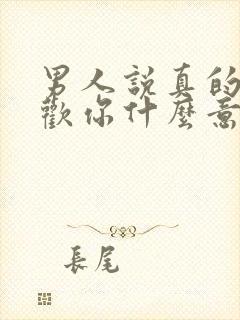 男人說真的
歡你什麼意
長尾